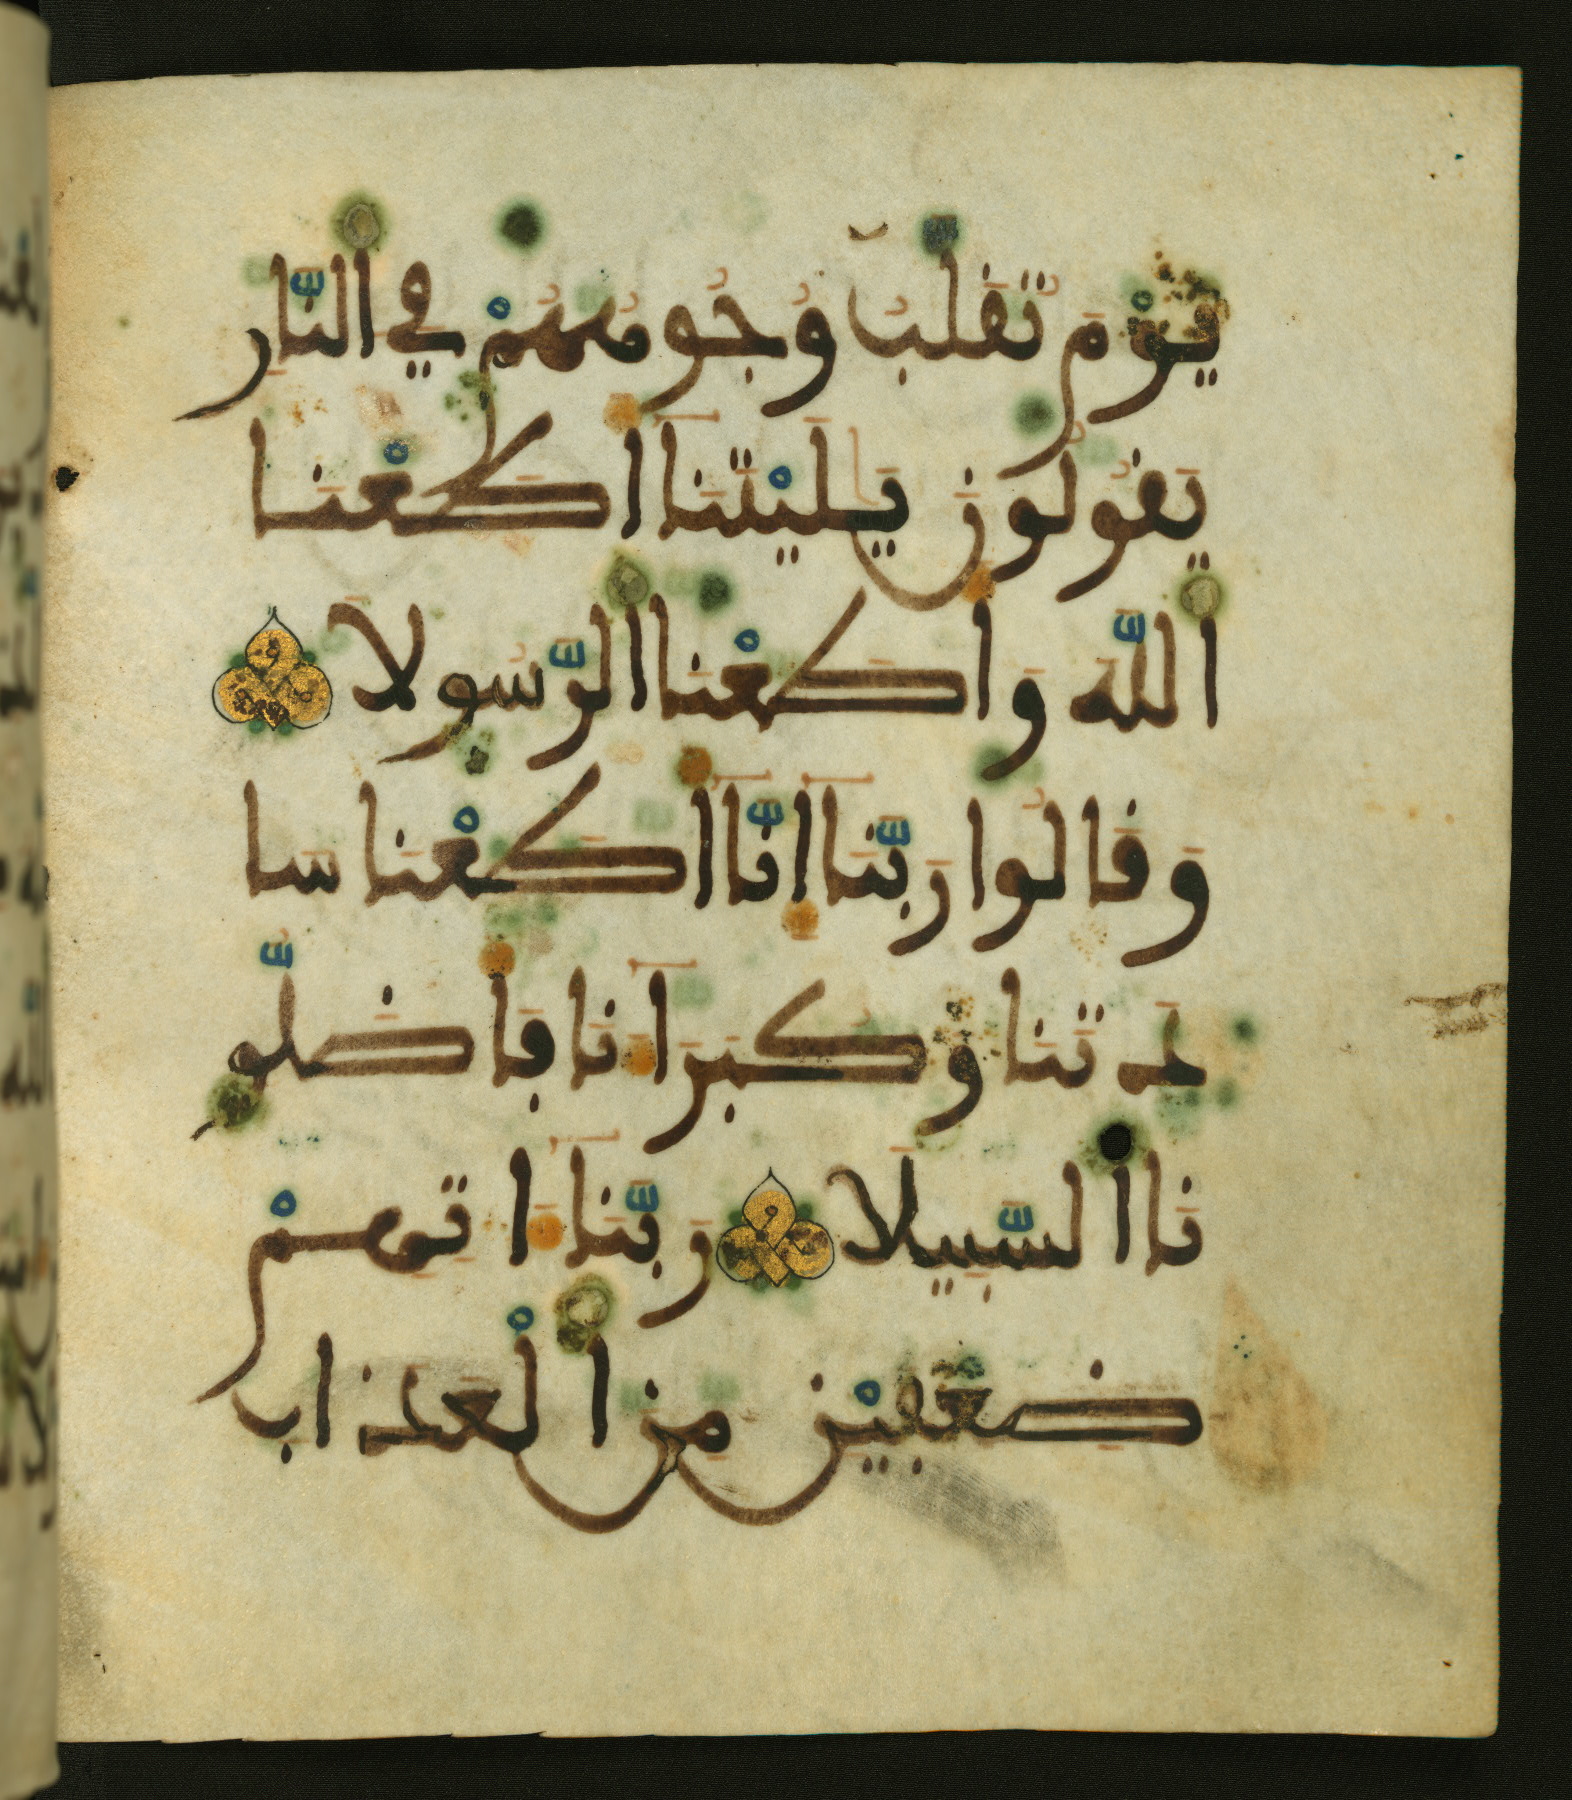 يَوْمَ تُقَلَّبُ وُجُوهُهُمْ فِي النَّارِ
يَقُولُونَ يَلَيْتَنَآ أَطَعْنَا
اللَّهَ وَأَطَعْنَا الرَّسُولَا
وَقَالُوا رَبَّنَآ إِنَّآ أَطَعْنَا سَا
دَتَنَا وَكُبَرَآءَنَا فَأَضَلُّو
نَا السَّبِيلَا رَبَّنَآ ءَاتِهِمْ
ضِعْفَيْنِ مِنَ الْعَذَابِ